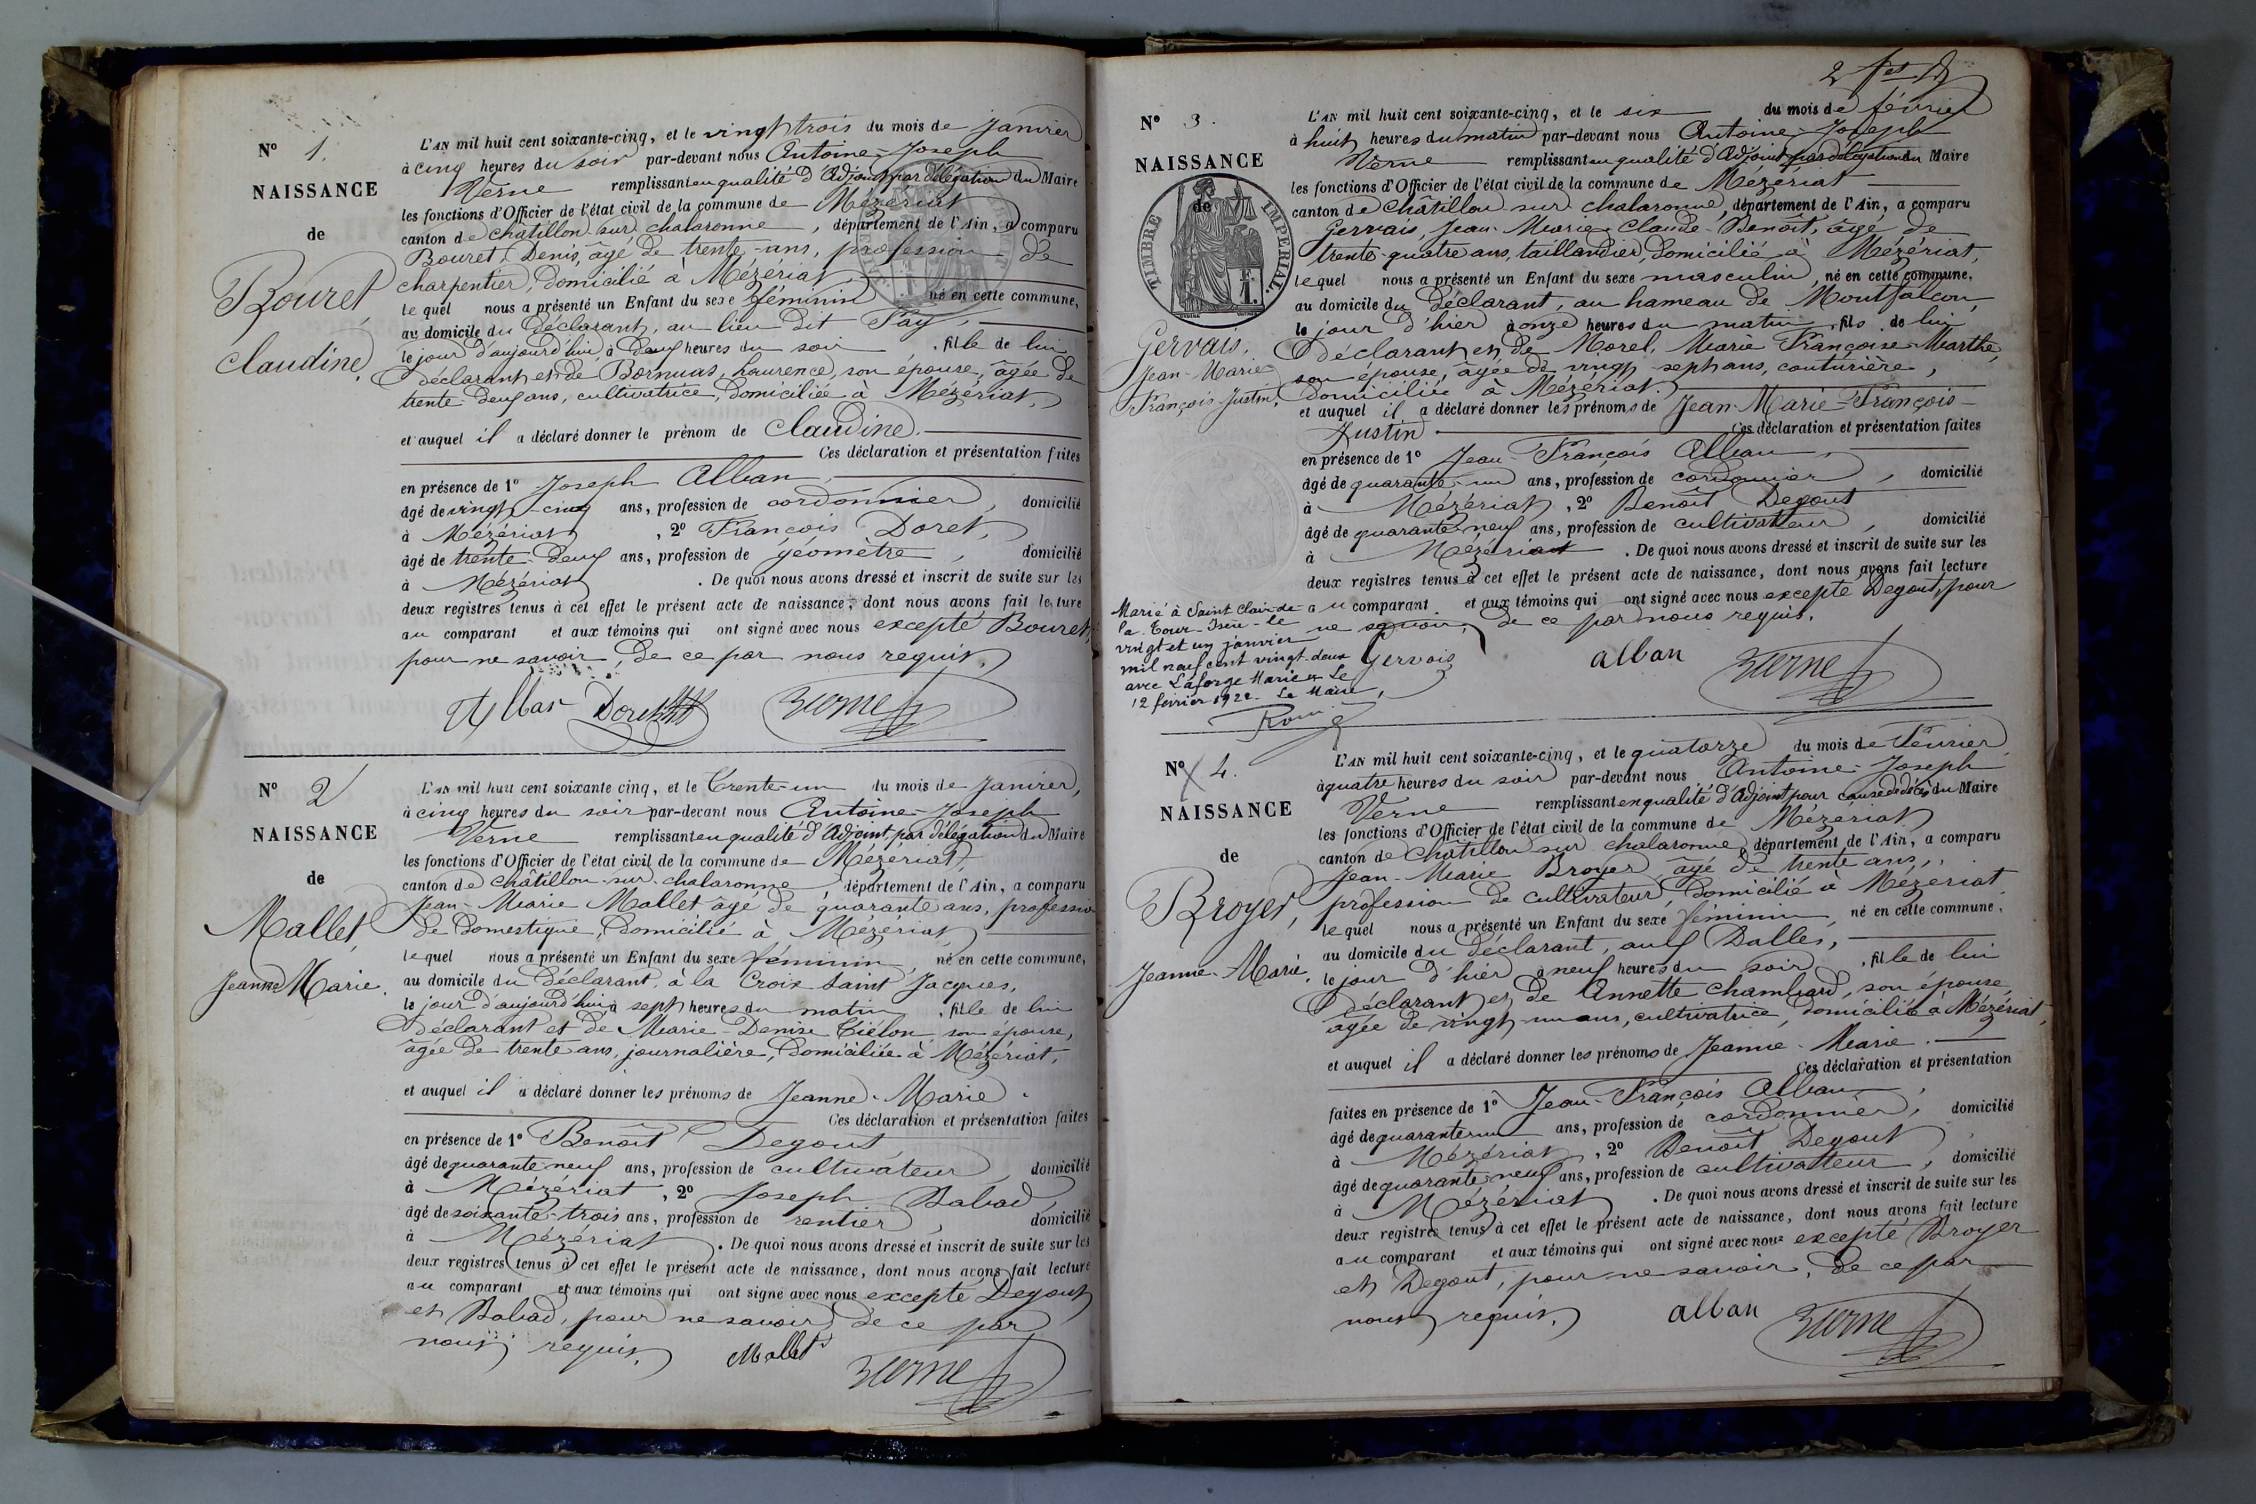 N° 1.
NAISSANCE
de
Bouret,
Claudine.
L'AN mil huit cent soixante-cinq, et le vingt trois du mois de Janvier
à cinq heures du soir par-devant nous Antoine-Joseph
Verne remplissant en qualité d'Adjoint par délégation du Maire
les fonctions d'Officier de l'état civil de la commune de Mézériat
canton de Châtillon sur chalaronne, département de l'Ain, a comparu
Bouret Denis, âgé de trente-ans, profession de
charpentier, domicilié à Mézériat,
lequel nous a présenté un Enfant du sexe féminin né en cette commune,
au domicile du déclarant, au lieu dit Fay,
le jour d'aujourd'hui, à deux heures du soir , fille de lui
déclarant et de Bornuas, Laurence, son épouse, âgée de
trente deux ans, cultivatrice, domiciliée à Mézériat,
et auquel il a déclaré donner le prénom de Claudine.
Ces déclaration et présentation faites
en présence de 1° Joseph Alban,
âgé de vingt-cinq ans, profession de cordonnier, domicilié
à Mézériat , 2° François Doret,
âgé de trente-deux ans, profession de géomètre, domicilié
à Mézériat . De quoi nous avons dressé et inscrit de suite sur les
deux registres tenus à cet effet le présent acte de naissance, dont nous avons fait lecture
au comparant et aux témoins qui ont signé avec nous excepté Bouret,
pour ne savoir, de ce par nous requis.
Alban Doret Verne
N° 2
NAISSANCE
de
Mallet,
Jeanne Marie.
L'AN mil huit cent soixante cinq, et le Trente-un du mois de Janvier,
à cinq heures du soir par-devant nous Antoine-Joseph
Verne remplissant en qualité d'Adjoint par délégation du Maire
les fonctions d'Officier de l'état civil de la commune de Mézériat,
canton de châtillon-sur-chalaronne, département de l'Ain, a comparu
Jean-Marie Mallet âgé de quarante ans, profession
de domestique, domicilié à Mézériat,
lequel nous a présenté un Enfant du sexe féminin, né en cette commune,
au domicile du déclarant, à la Croix Saint Jacques,
le jour d'aujourd'hui à sept heures du matin , fille de lui
déclarant et de Marie-Denise Tiélon, son épouse,
âgée de trente ans, journalière, domiciliée à Mézériat,
et auquel il a déclaré donner les prénoms de Jeanne-Marie.
Ces déclaration et présentation faites
en présence de 1° Benoît Degout,
âgé de quarante neuf ans, profession de cultivateur, domicilié
à Mézériat , 2° Joseph Babad,
âgé de soixante-trois ans, profession de rentier, domicilié
à Mézériat . De quoi nous avons dressé et inscrit de suite sur les
deux registres tenus à cet effet le présent acte de naissance, dont nous avons fait lecture
au comparant et aux témoins qui ont signé avec nous excepté Degout
et Babad, pour ne savoir, de ce par
nous requis, Mallet Verne
N° 3.
NAISSANCE
de
TIMBRE IMPERIAL
Gervais,
Jean-Marie
François-Justin.
L'AN mil huit cent soixante-cinq, et le six du mois de février
à huit heures du matin par-devant nous Antoine-Joseph
Verne remplissant en qualité d'Adjoint par délégation du Maire
les fonctions d'Officier de l'état civil de la commune de Mézériat
canton de Châtillon sur chalaronne, département de l'Ain, a comparu
Gervais, Jean-Marie-Claude-Benoît, âgé de
trente-quatre ans, taillandier, domicilié à Mézériat,
lequel nous a présenté un Enfant du sexe masculin, né en cette commune,
au domicile du déclarant, au hameau de Montfalcon,
le jour d'hier à onze heures du matin, fils de lui
déclarant et de Morel, Marie Françoise-Marthe,
son épouse, âgée de vingt sept ans, couturière,
domiciliée à Mézériat,
et auquel il a déclaré donner les prénoms de Jean-Marie-François-
Justin Ces déclaration et présentation faites
en présence de 1° Jean François Alban,
âgé de quarante-un ans, profession de cordonnier, domicilié
à Mézériat , 2° Benoît Degout
âgé de quarante-neuf ans, profession de cultivateur, domicilié
à Mézériat . De quoi nous avons dressé et inscrit de suite sur les
deux registres tenus à cet effet le présent acte de naissance, dont nous avons fait lecture
au comparant et aux témoins qui ont signé avec nous excepté Degout, pour
ne savoir, de ce par nous requis.
Gervais alban Verne
Marié à Saint Clair-de-
la-Tour-Isère-le
vingt et un janvier
mil neuf cent vingt-deux
avec Laforge Marie Le
12 février 1922. Le Maire,
N° 4.
NAISSANCE
de
Broyer,
Jeanne-Marie.
L'AN mil huit cent soixante-cinq, et le quatorze du mois de Février
à quatre heures du soir par-devant nous Antoine-Joseph
Verne remplissant en qualité d'Adjoint pour cause de décès du Maire
les fonctions d'Officier de l'état civil de la commune de Mézériat
canton de Châtillon sur chalaronne, département de l'Ain, a comparu
Jean-Marie Broyer, âgé de trente ans,
profession de cultivateur, domicilié à Mézériat
lequel nous a présenté un Enfant du sexe féminin, né en cette commune,
au domicile du déclarant, aux Balles,
le jour d'hier à neuf heures du soir , fille de lui
déclarant et de Annette Chambard, son épouse,
âgée de vingt-un ans, cultivatrice, domicilié à Mézériat,
et auquel il a déclaré donner les prénoms de Jeanne-Marie.
Ces déclaration et présentation
faites en présence de 1° Jean-François Alban,
âgé de quarante un ans, profession de cordonnier, domicilié
à Mézériat , 2° Benoît Degout
âgé de quarante neuf ans, profession de cultivateur, domicilié
à Mézériat . De quoi nous avons dressé et inscrit de suite sur les
deux registres tenus à cet effet le présent acte de naissance, dont nous avons fait lecture
au comparant et aux témoins qui ont signé avec nous excepté Broyer
et Degout, pour ne savoir, de ce par
nous requis, alban Verne